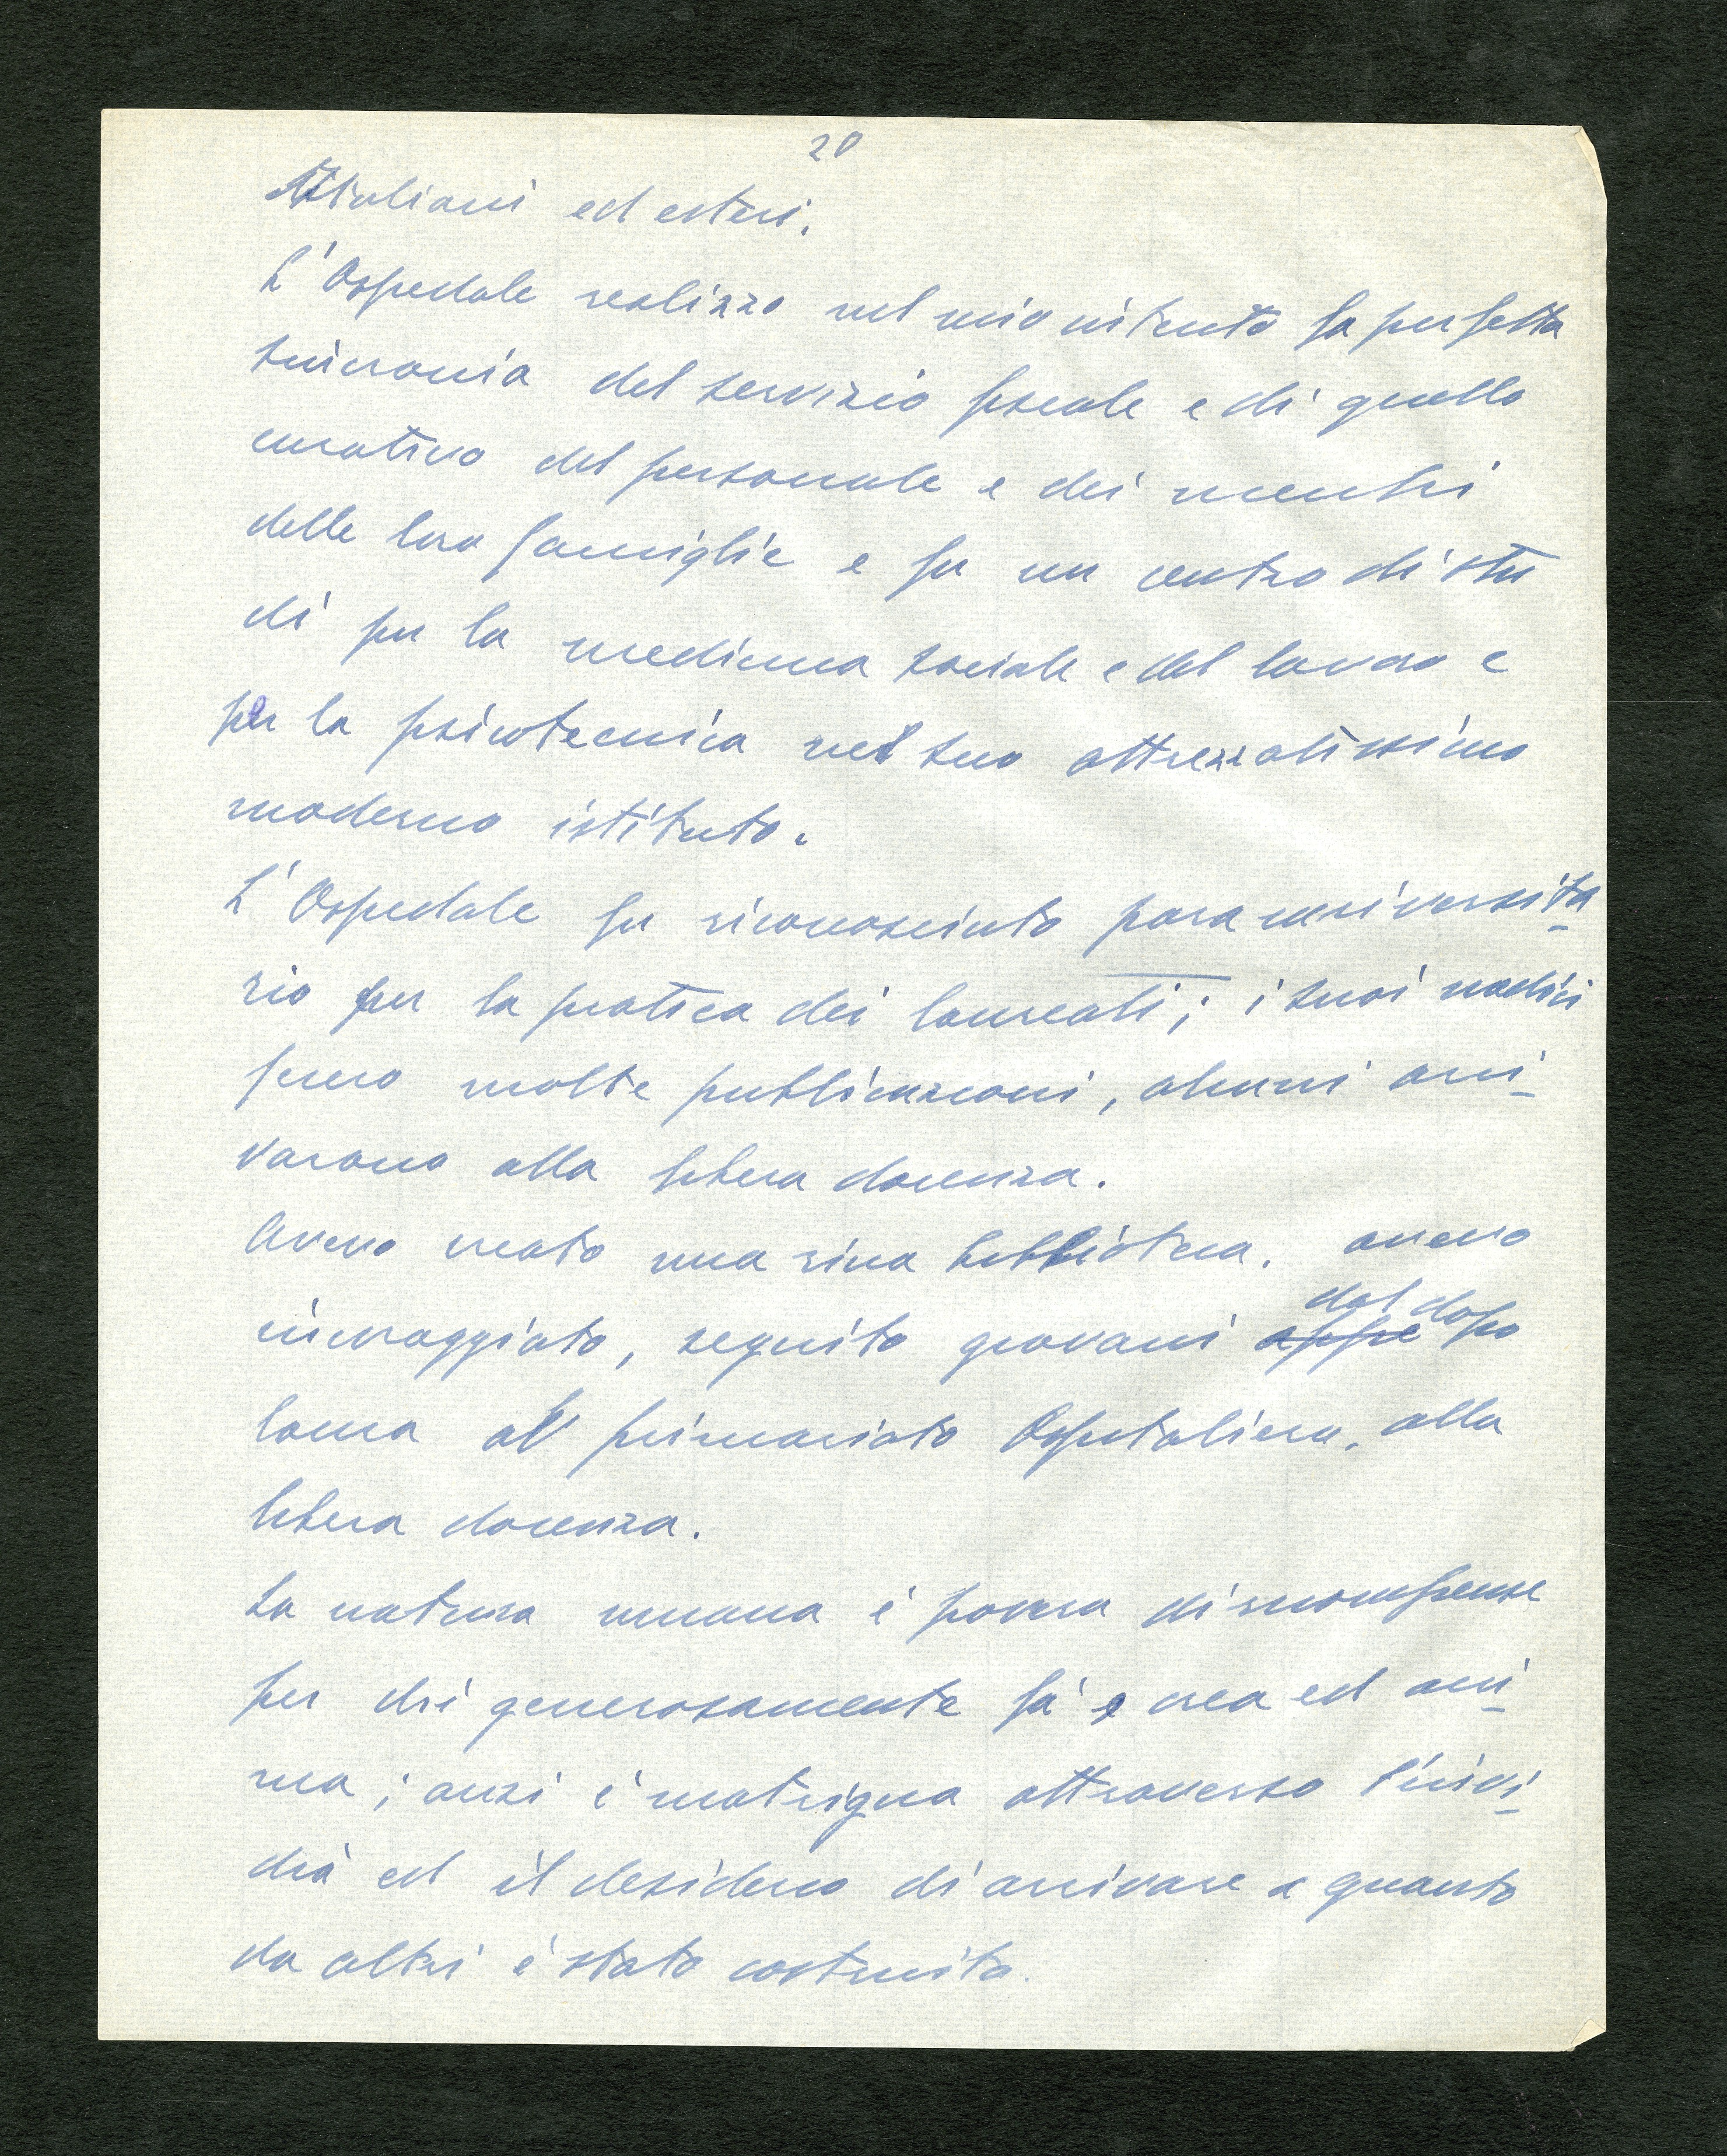 20
Italiani ed esteri.
L'Ospedale realizzo nel mio intento la perfetta
sincronia del servizio fiscale e di quello
curativo del personale e dei membri
delle loro famiglie e fu un centro di stu
di per la medicina sociale e del lavoro e
per la psicotecnica nel suo attrezzatissimo
moderno istituto.
L'Ospedale fu riconosciuto parauniversita-
rio per la pratica dei laureati; i suoi medici
fecero molte pubblicazioni, alcuni arri-
varono alla libera docenza.
Avevo creato una ricca biblioteca. avevo
incoraggiato, seguito giovani dal dopo
laurea al primariato Ospitaliero, alla
libera docenza.
La natura umana è povera di ricompense
per chi generosamente fà e crea ed ani-
ma; anzi è matrigna attraverso l'invi-
dià ed il desiderio di arrivare a quanto
da altri è stato costruito.